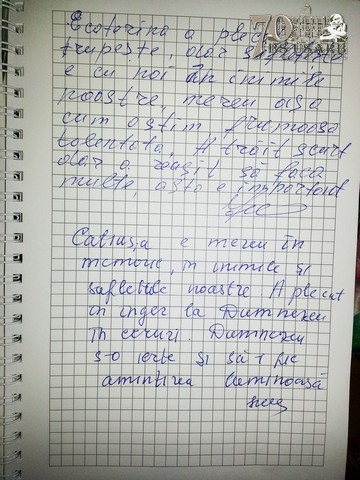 Ecaterina a plecat
trupește, dar
e cu noi în inimile
noastre, mereu așa
cum o știm frumoasa
talentata. A trăit scurt
dar a reușit să facă
multe, asta e important
Catiușa e mereu în
memorie, în inimile și
sufletele noastre A plecat
un inger la Dumnezeu
în ceruri. Dumnezeu
s-o ierte și să-i fie
amintirea luminoasă
70
USARB